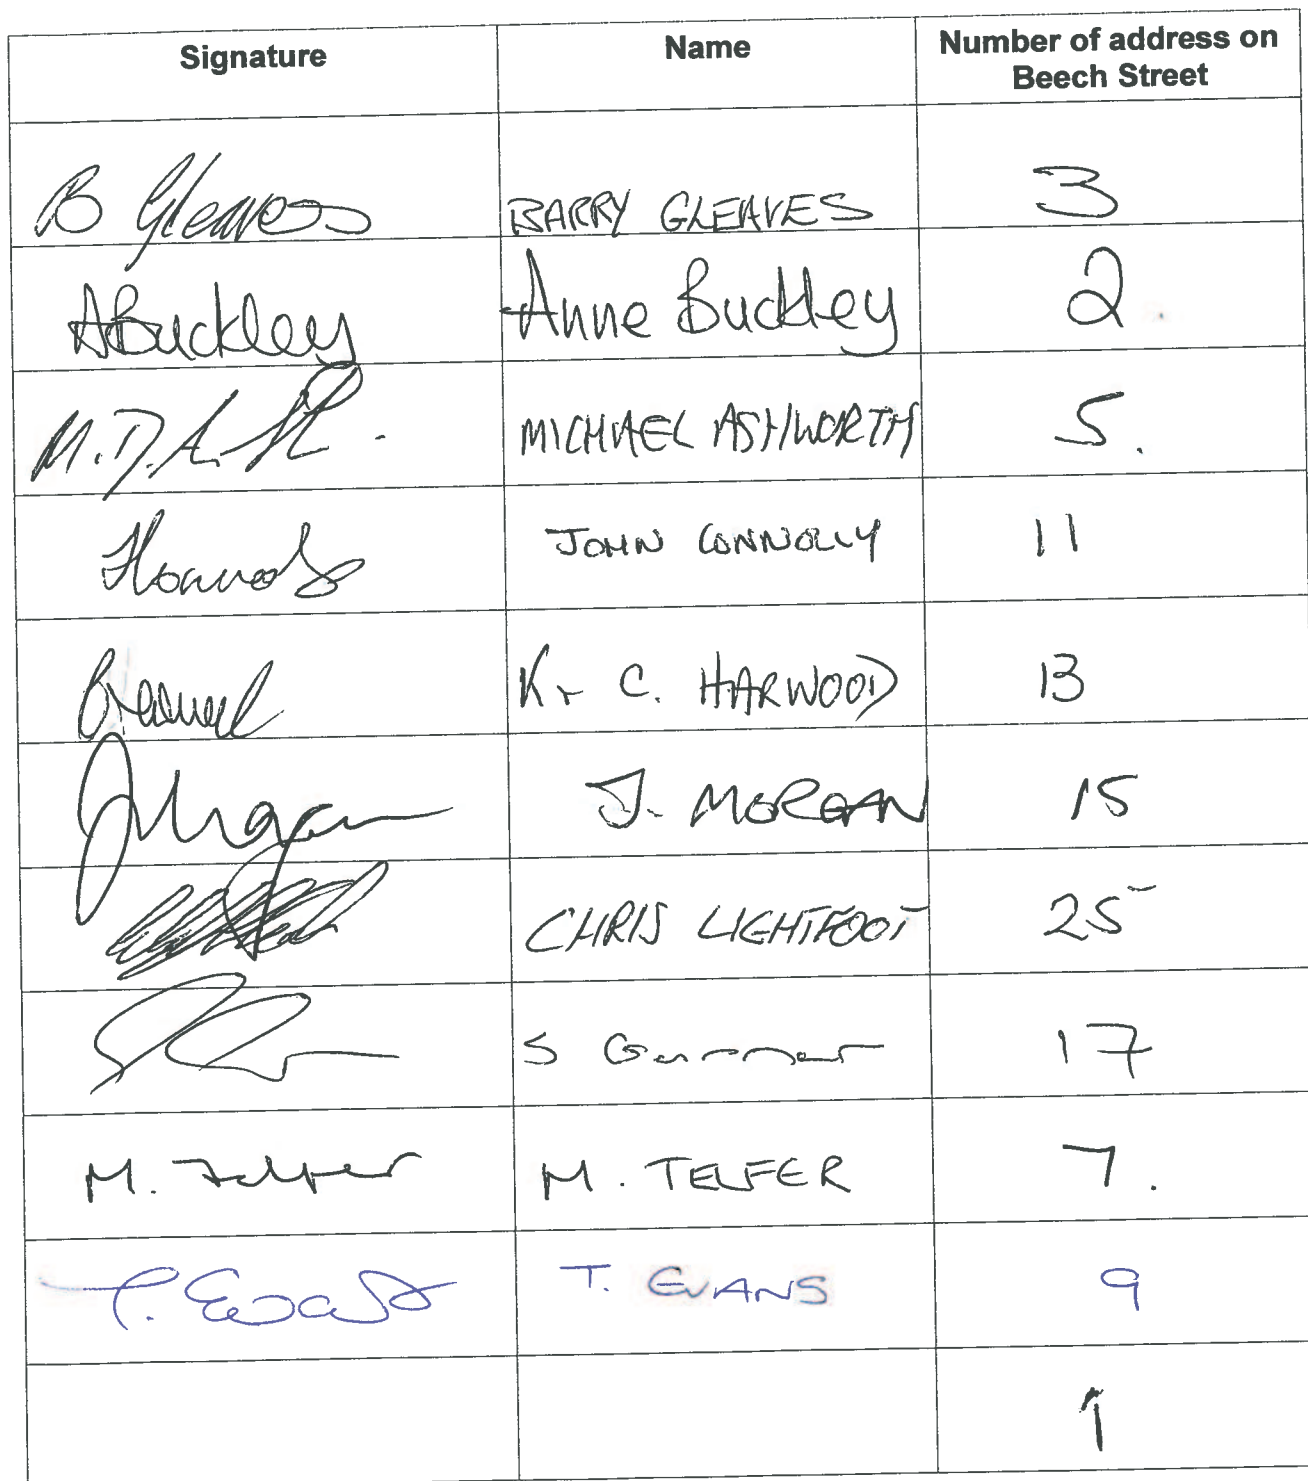 Signature Name Number of address on
Beech Street
B Gleaves BARRY GLEAVES 3
ABuckley Anne Buckley 2
M.D. MICHAEL ASHWORTH 5.
JOHN CONNOLLY 11
K + C. HARWOOD 13
J. MORGAN 15
CHRIS LIGHTFOOT 25
S 17
M. Telfer M. TELFER 7.
T. Evans T. EVANS 9
1